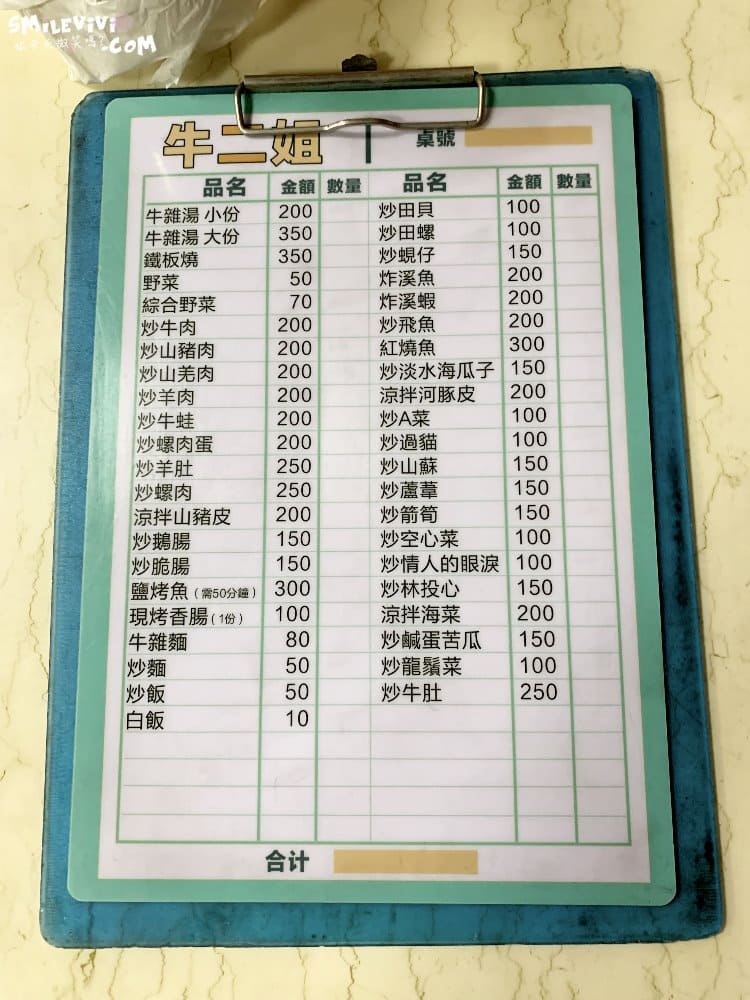 SMILEVIVI
你今天微笑嗎?
COM
牛二姐
桌號
品名 金額 數量 品名 金額 數量
牛雜湯 小份 200 炒田貝 100
牛雜湯 大份 350 炒田螺 100
鐵板燒 350 炒蜆仔 150
野菜 50 炸溪魚 200
綜合野菜 70 炸溪蝦 200
炒牛肉 200 炒飛魚 200
炒山豬肉 200 紅燒魚 300
炒山羌肉 200 炒淡水海瓜子 150
炒羊肉 200 涼拌河豚皮 200
炒牛蛙 200 炒A菜 100
炒螺肉蛋 200 炒過貓 100
炒羊肚 250 炒山蘇 150
炒螺肉 250 炒蘆葦 150
涼拌山豬皮 200 炒箭筍 150
炒鵝腸 150 炒空心菜 100
炒脆腸 150 炒情人的眼淚 100
鹽烤魚(需50分鐘) 300 炒林投心 150
現烤香腸(1份) 100 涼拌海菜 200
牛雜麵 80 炒鹹蛋苦瓜 150
炒麵 50 炒龍鬚菜 100
炒飯 50 炒牛肚 250
白飯 10
合计